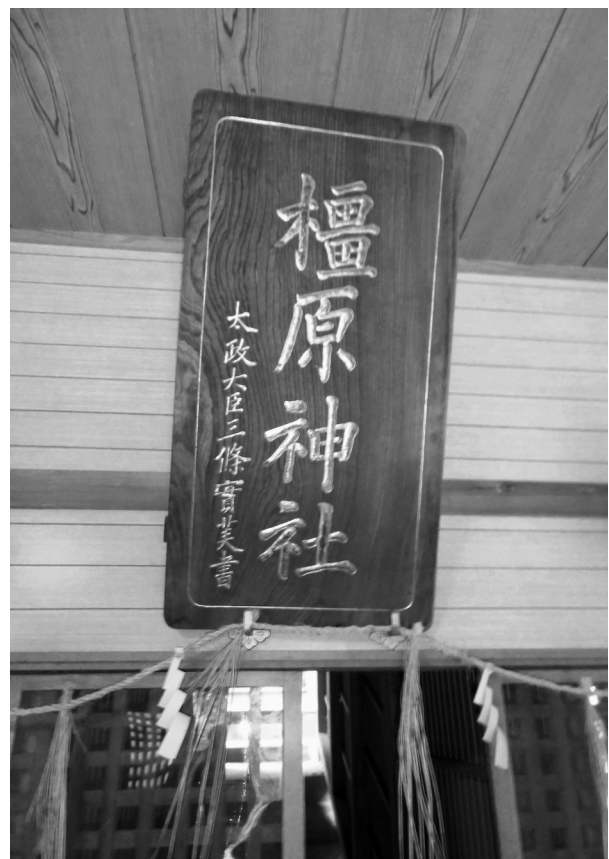 橿原神社
太政大臣三條實美書